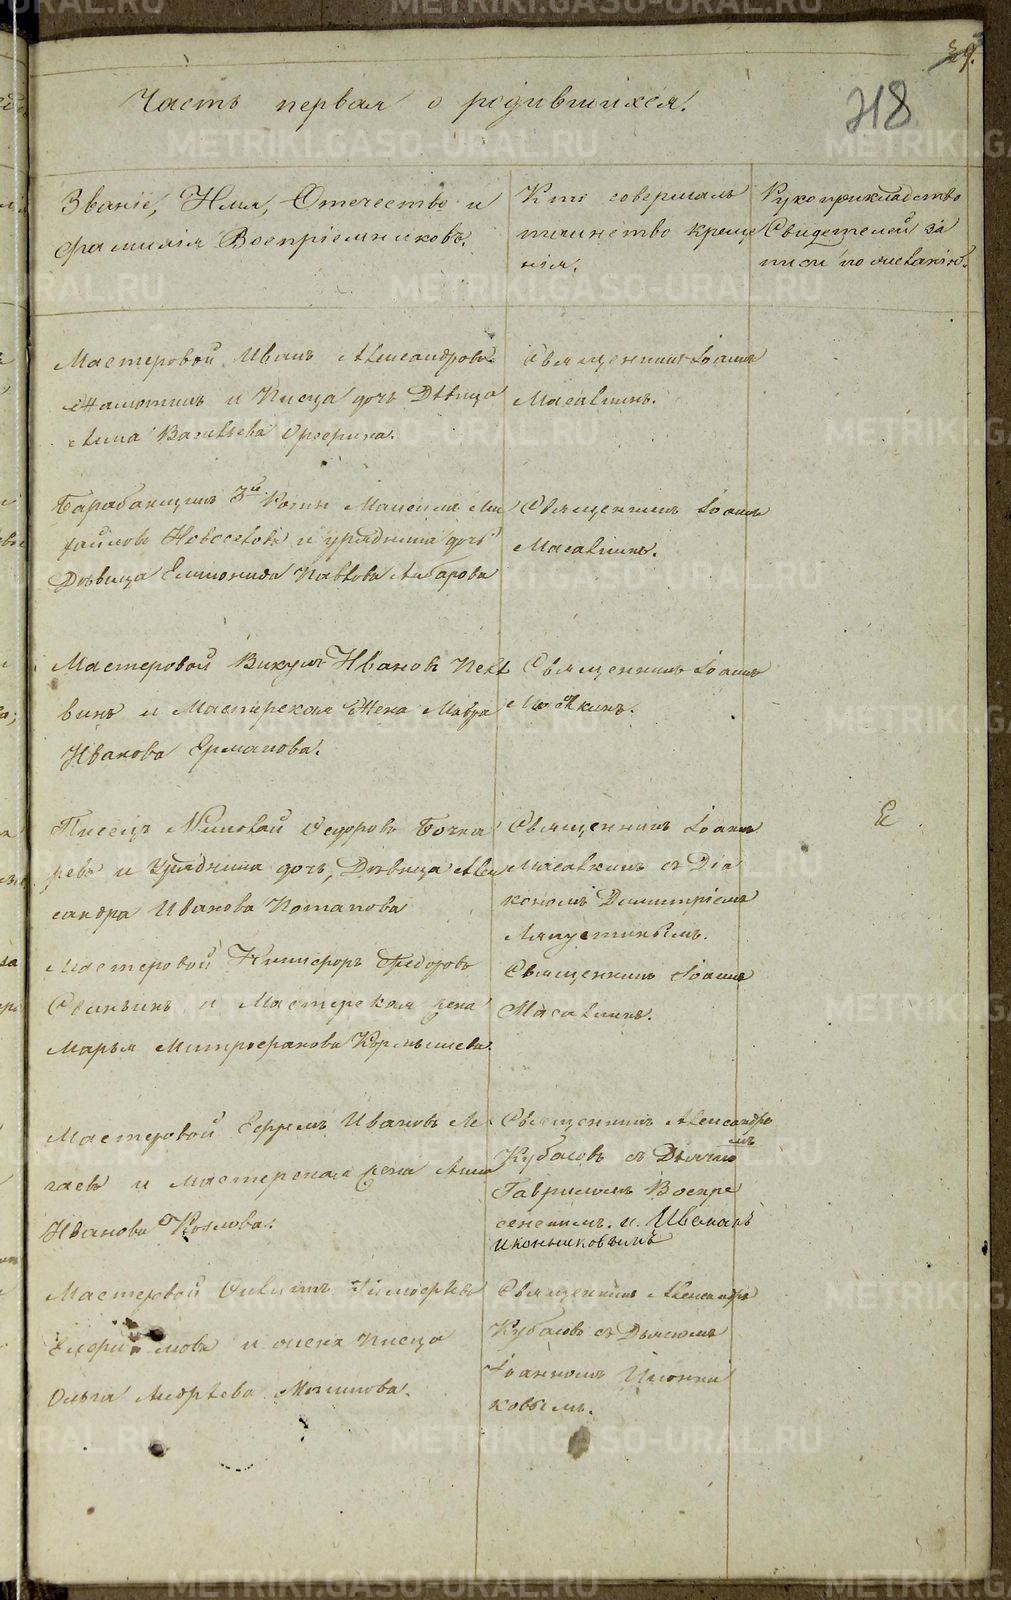 39.
218
Часть первая о родившихся.
Званіе, Имя, Отечество и
фамилія Воспріемниковъ.
Кто совершалъ
таинство креще
нія.
Рукоприкладство
Свидетелей за
писи по желанію.
Мастеровой Иванъ Александровъ
и Писца дочь Дѣвица
Анна Васильева
Священникъ Іоаннъ
Барабанщикъ 3й Роты Максимъ Ми
хайловъ Новоселовъ и урядника дочь
Дѣвица Павлова
Священникъ Іоаннъ
Мастеровой Викулъ Ивановъ
и Мастерская Жена Мавра
Иванова Ермакова.
Священникъ Іоаннъ
Писецъ Николай Федоровъ Бочка
ревъ и Урядника дочь, Дѣвица Алек
сандра Иванова Потапова
Священникъ Іоаннъ
съ Діа
кономъ Димитріемъ
Ляпустинымъ.
Е
Мастеровой Никифоръ Федоровъ
и Мастерская жена
Марья Митрофанова
Священникъ Іоаннъ
Мастеровой Ефремъ Ивановъ
и мастерская жена Анна
Иванова Козлова.
Священникъ Александръ
Кубасовъ съ Дьячко
мъ
Гаврииломъ Воскре
сенскимъ. и
Иконниковымъ
Мастеровой
и жена Писца
Ольга Андреева
Священникъ Александръ
Кубасовъ съ Дьячкомъ
Іоанномъ Иконни
ковымъ.
METRIKI.GASO-URAL.RU